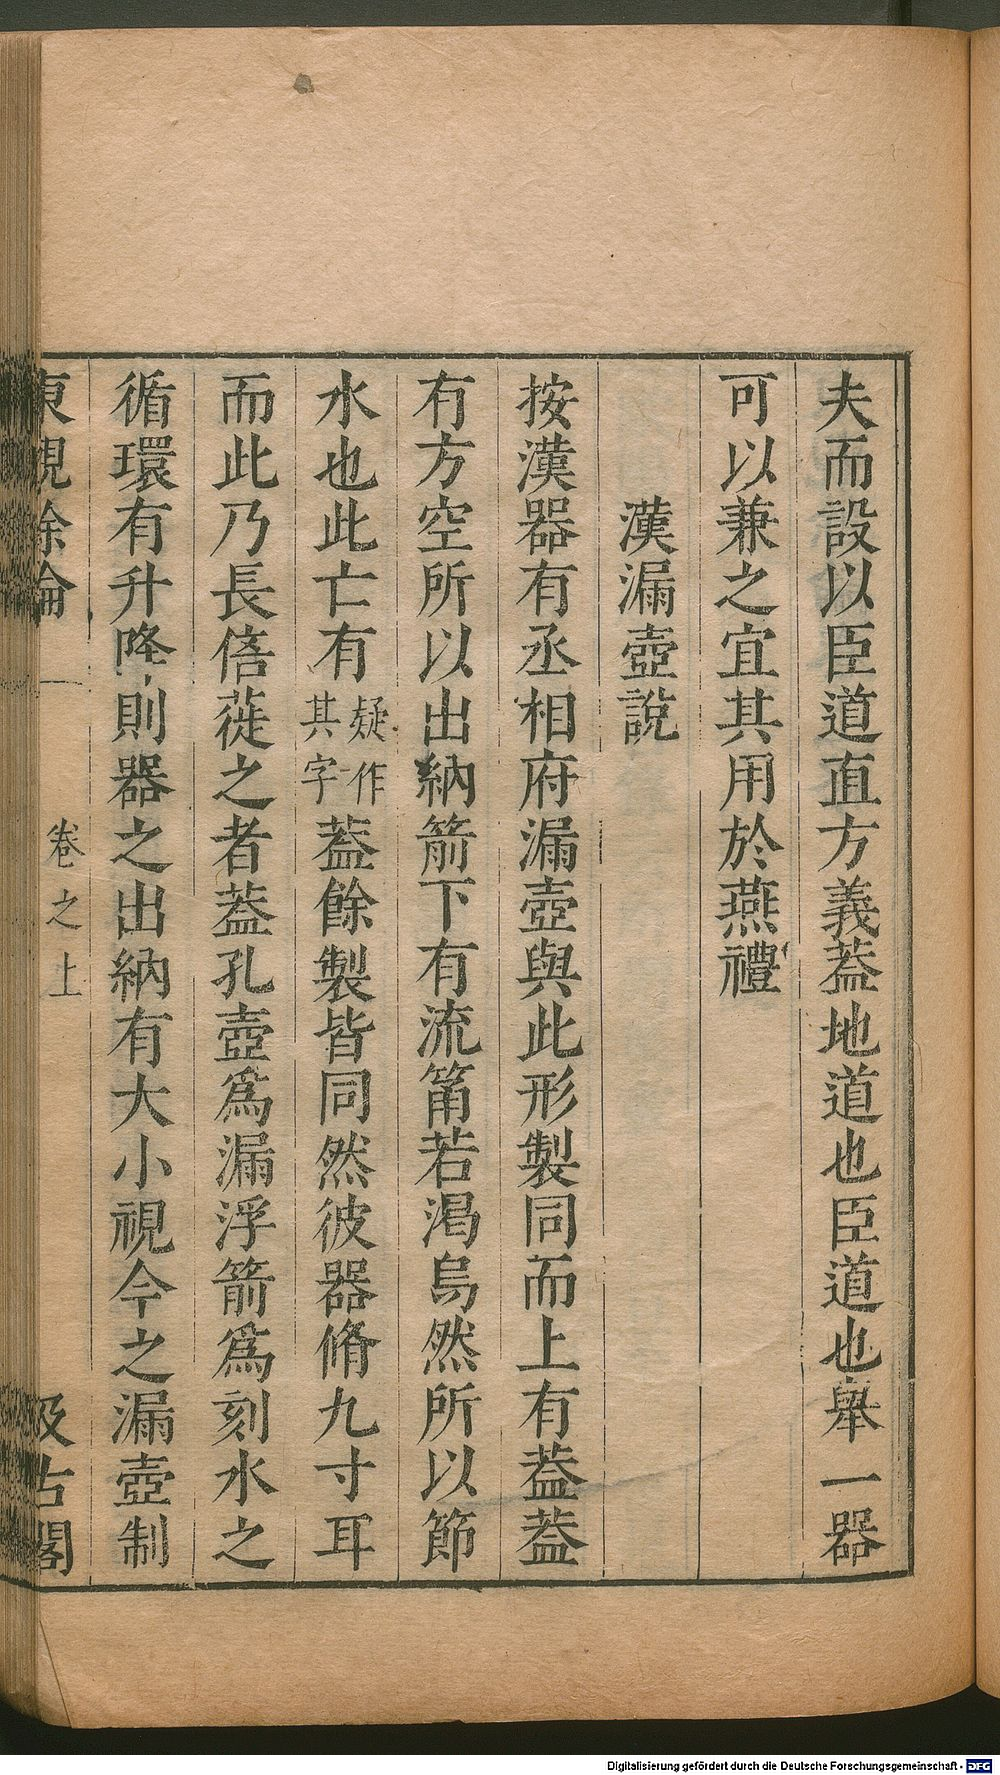 夫而設以臣道直方義葢地道也臣道也舉一器
可以兼之宜其用於燕禮
漢漏壺說
按漢器有丞相府漏壺與此形製同而上有葢葢
有方空所以出納箭下有流筩若渴烏然所以節
水也此亡有疑作其字葢餘製皆同然彼器脩九寸耳
而此乃長倍蓰之者葢孔壺爲漏浮箭爲刻水之
循環有升降則器之出納有大小視今之漏壺制
東觀餘論 卷之上 汲古閣
Digitalisierung gefördert durch die Deutsche Forschungsgemeinschaft - DFG